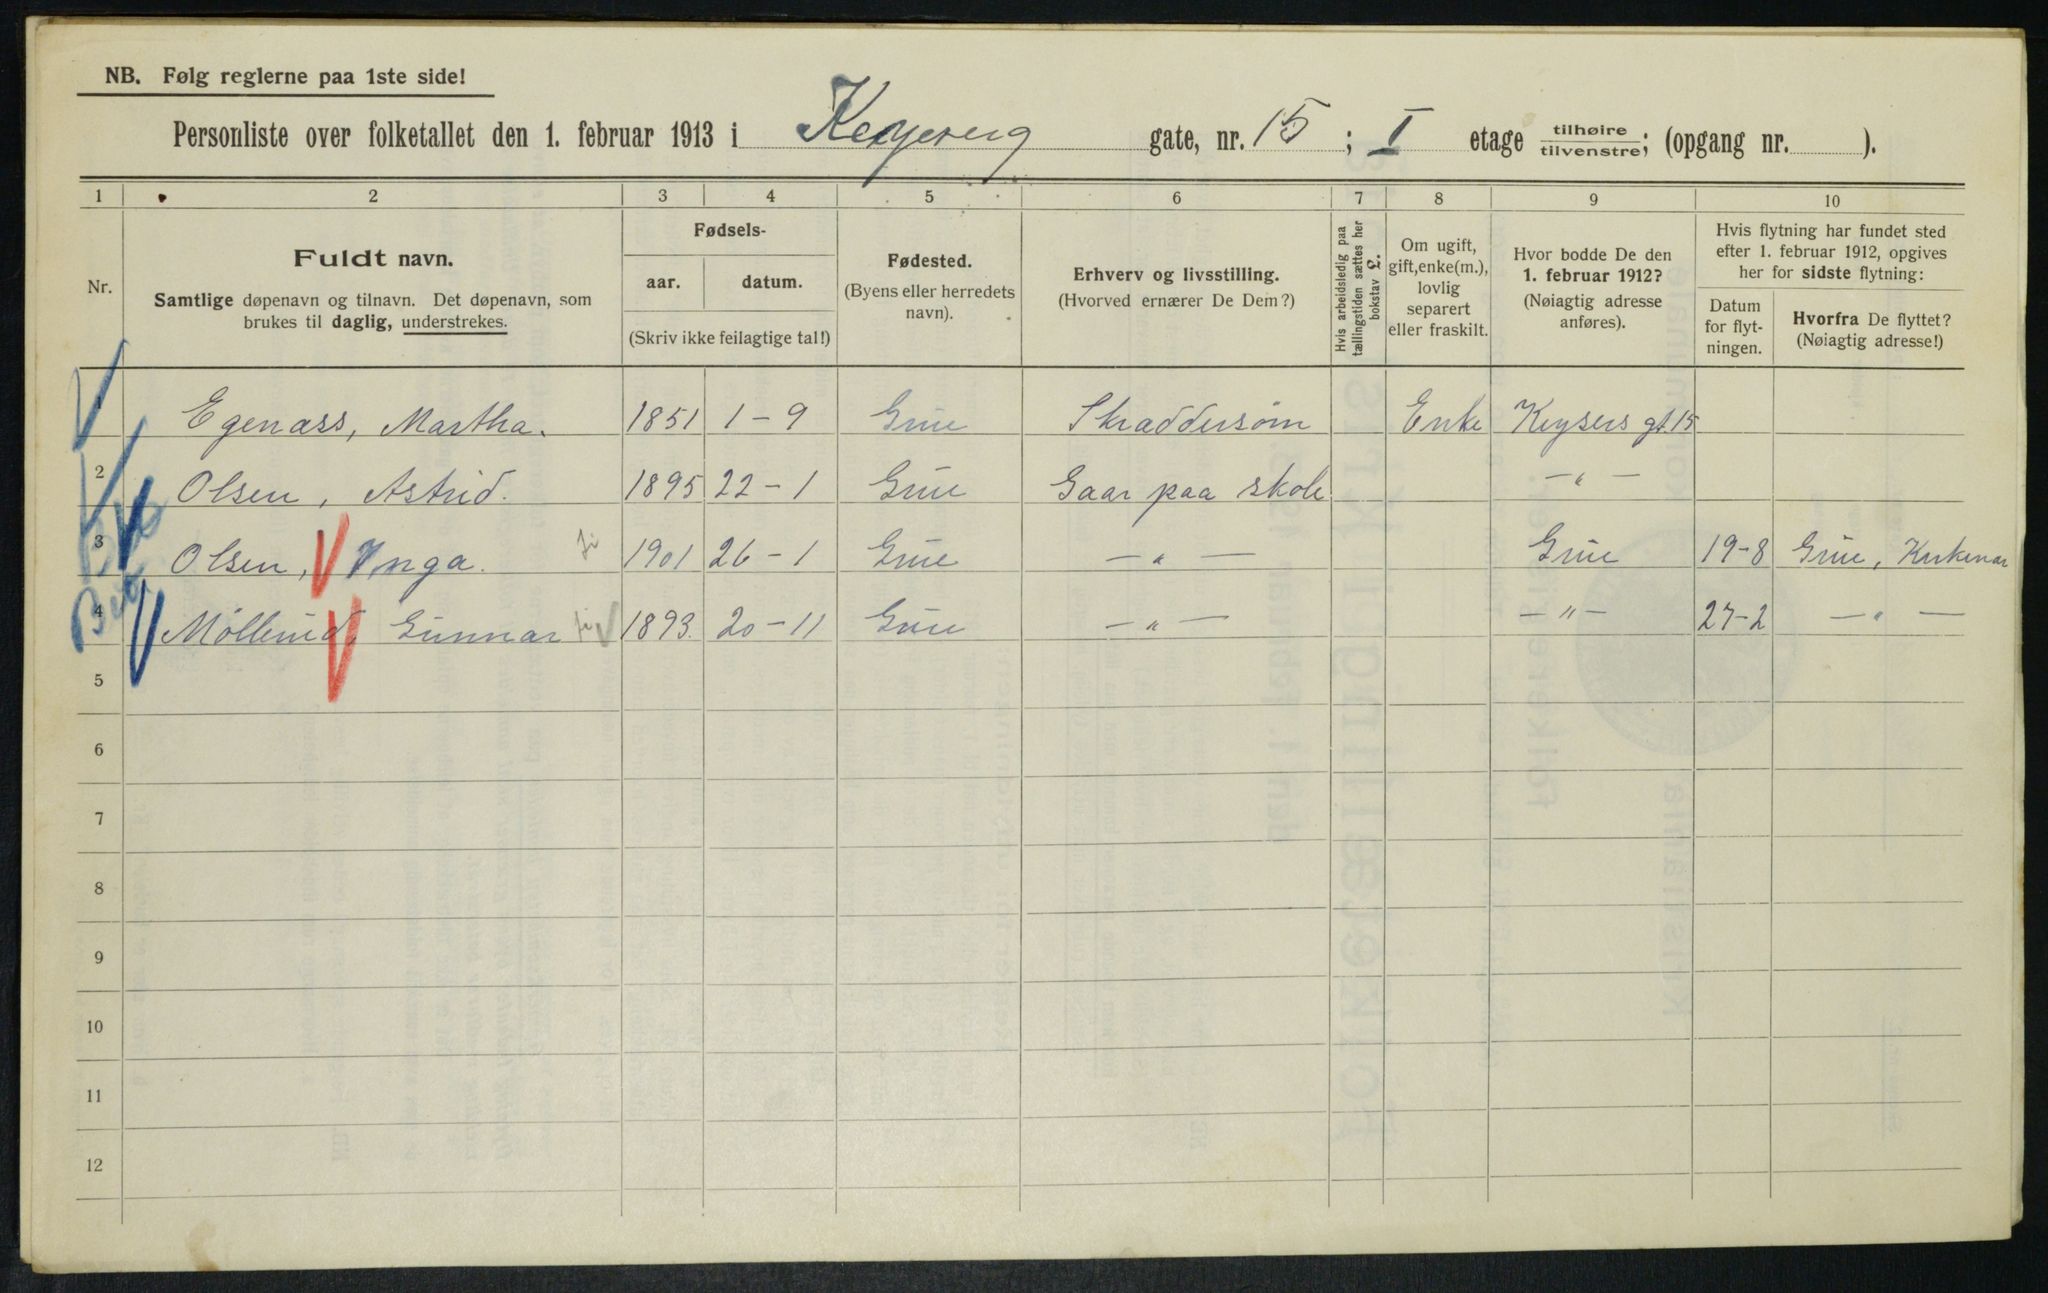 NB. Følg reglerne paa 1ste side!
Personliste over folketallet den 1. februar 1913 i Keysers gate, nr. 15 ; I etage tilhøire tilvenstre; (opgang nr. ).
1 2 3 4 5 6 7 8 9 10
Nr.
Fuldt navn.
Samtlige døpenavn og tilnavn. Det døpenavn, som
brukes til daglig, understrekes.
Fødsels-
aar. datum.
(Skriv ikke feilagtige tal!)
Fødested.
(Byens eller herredets
navn).
Erhverv og livsstilling.
(Hvorved ernærer De Dem?)
Hvis arbeidsledig paa
tællingstiden sættes her
bokstav L.
Om ugift,
gift,enke(m.),
lovlig
separert
eller fraskilt.
Hvor bodde De den
1. februar 1912?
(Nøiagtig adresse
anføres).
Hvis flytning har fundet sted
efter 1. februar 1912, opgives
her for sidste flytning:
Datum
for flyt-
ningen.
Hvorfra De flyttet?
(Nøiagtig adresse!)
1 Egenæss, Martha. 1851 1-9 Grue Skraddersøm Enke Keysers gt. 15
2 Olsen, Astrid. 1895 22-1 Grue Gaar paa skole -"-
3 Olsen, Inga. 1901 26-1 Grue -"- Grue 19-8 Grue, Kirkenær
4 Møllerud, Gunnar 1893. 20-11 Grue -"- -"- 27-2 -"-
5
6
7
8
9
10
11
12